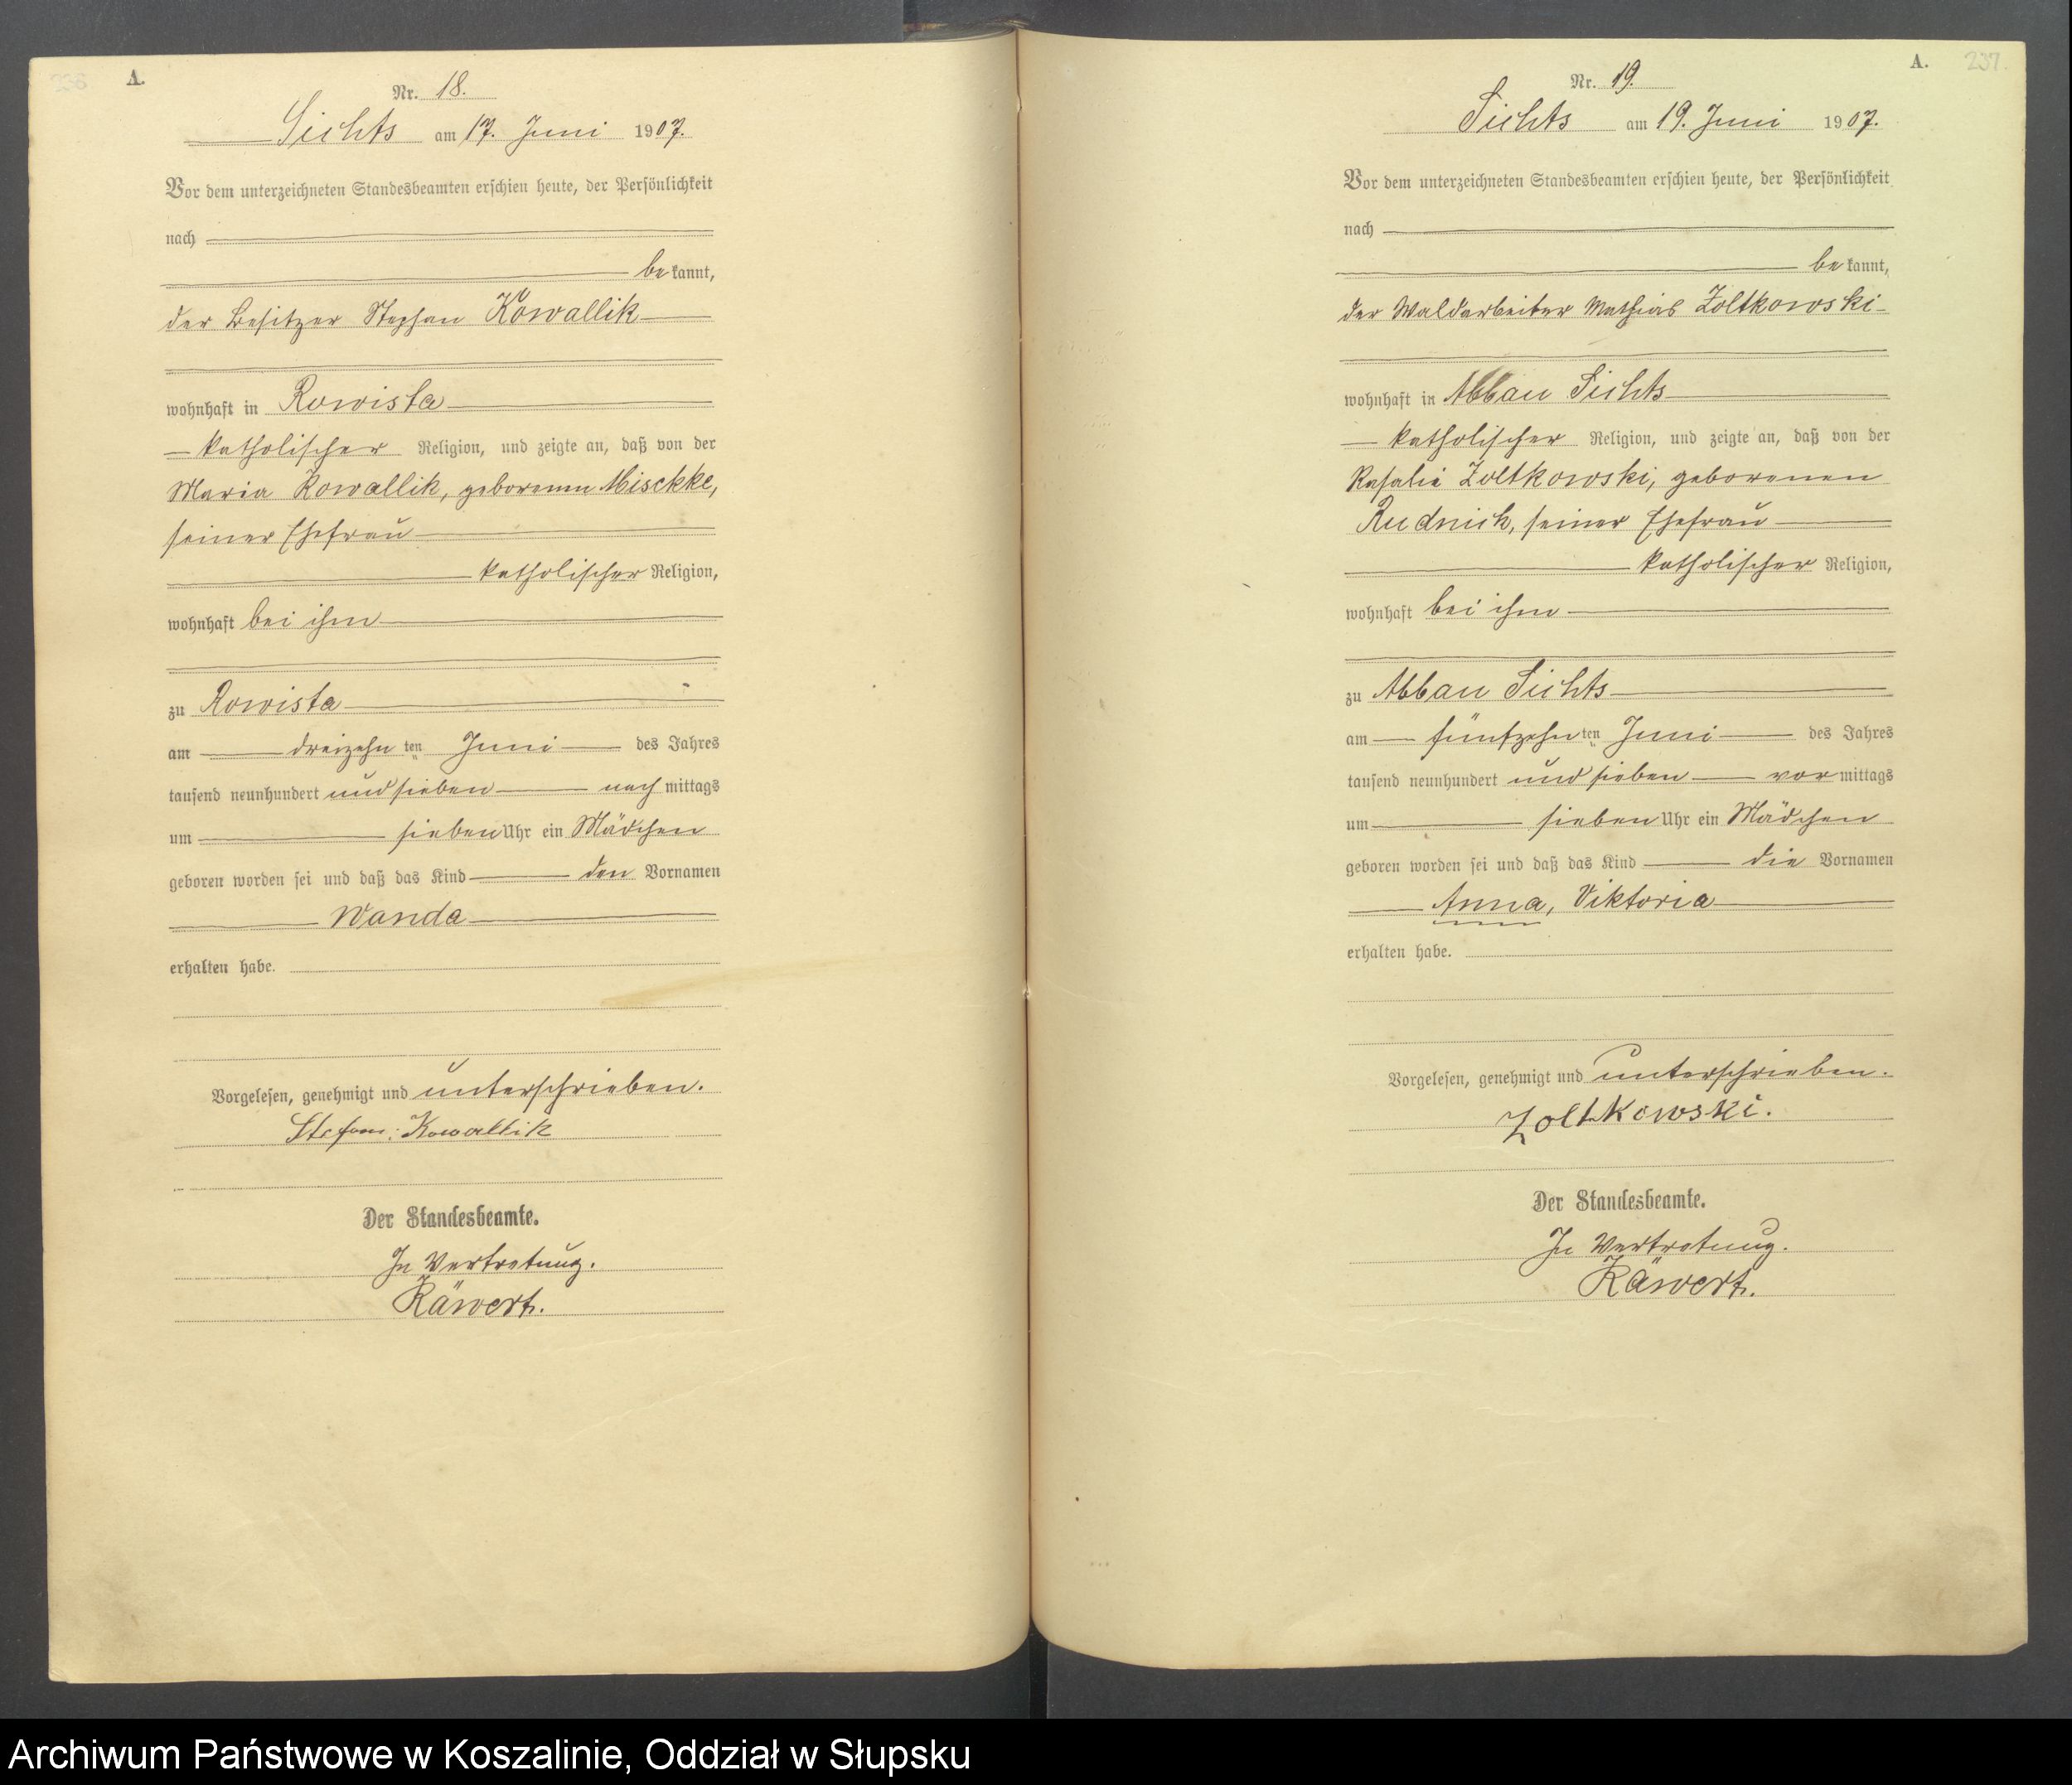 236
A.
Nr. 18.
Sichts am 17. Juni 1907.
Vor dem unterzeichneten Standesbeamten erschien heute, der Persönlichkeit
nach
be kannt,
der Besitzer Stephan Kowallik
wohnhaft in Rowista
katholischer Religion, und zeigte an, daß von der
Maria Kowallik, geborenen Mischke,
seiner Ehefrau
katholischer Religion,
wohnhaft bei ihm
zu Rowista
am dreizehn ten Juni des Jahres
tausend neunhundert und sieben nach mittags
um sieben Uhr ein Mädchen
geboren worden sei und daß das Kind den Vornamen
Wanda
erhalten habe.
Vorgelesen, genehmigt und unterschrieben.
Stefan Kowallik
Der Standesbeamte.
In Vertretung.
Räwert.
A. 237.
Nr. 19.
Sichts am 19. Juni 1907.
Vor dem unterzeichneten Standesbeamten erschien heute, der Persönlichkeit
nach
be kannt,
der Waldarbeiter Mathias Zoltkowski
wohnhaft in Abbau Sichts
katholischer Religion, und zeigte an, daß von der
Rosalie Zoltkowski, geborenen
Rudnick, seiner Ehefrau
katholischer Religion,
wohnhaft bei ihm
zu Abbau Sichts
am fünfzehn ten Juni des Jahres
tausend neunhundert und sieben vor mittags
um sieben Uhr ein Mädchen
geboren worden sei und daß das Kind die Vornamen
Anna, Viktoria
erhalten habe.
Vorgelesen, genehmigt und unterschrieben.
Zoltkowski.
Der Standesbeamte.
In Vertretung.
Räwert.
Archiwum Państwowe w Koszalinie, Oddział w Słupsku